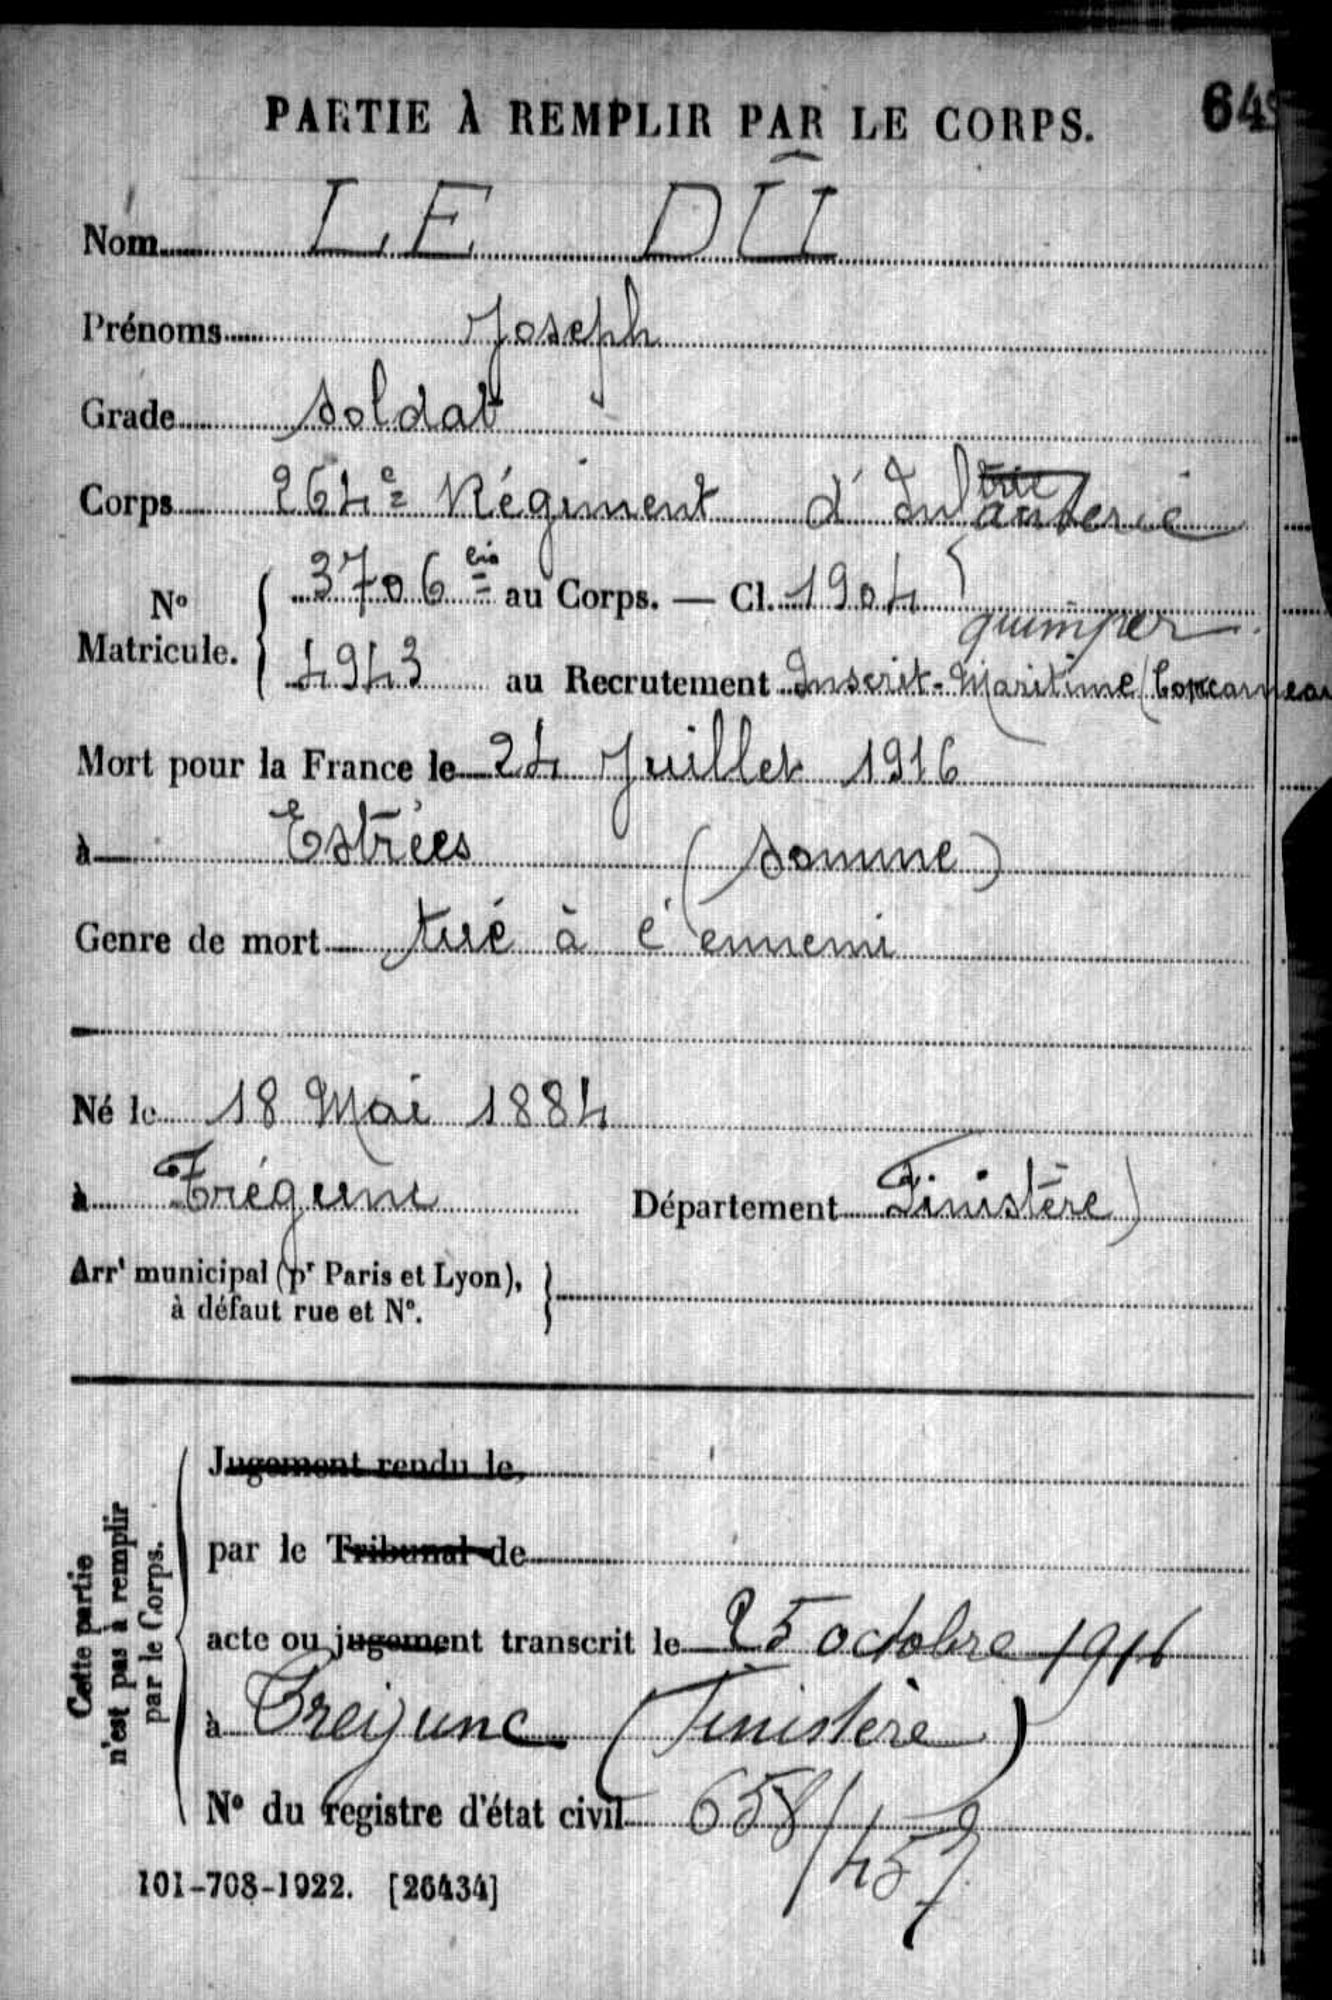 PARTIE À REMPLIR PAR LE CORPS.
Nom LE DÛ
Prénoms Joseph
Grade soldat
Corps 264e Régiment d'Infanterie
N° Matricule. 3706 bis au Corps. — Cl. 1904
quimper
4943 au Recrutement Inscrit-Maritime (Concarneau
Mort pour la France le 24 Juillet 1916
à Estrées (Somme)
Genre de mort tué à l'ennemi
Né le 18 Mai 1884
à Trégunc Département Finistère)
Arrt municipal (pr Paris et Lyon),
à défaut rue et N°.
Cette partie
n'est pas à remplir
par le Corps.
Jugement rendu le
par le Tribunal de
acte ou jugement transcrit le 25 octobre 1916
à Treizunc (Finistère)
N° du registre d'état civil 658/457
101-708-1922. [26434]